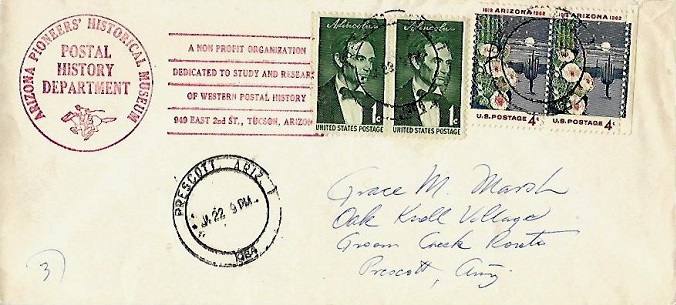 ARIZONA PIONEERS' HISTORICAL MUSEUM
POSTAL
HISTORY
DEPARTMENT
A NON PROFIT ORGANIZATION
DEDICATED TO STUDY AND RESEAR
OF WESTERN POSTAL HISTORY
949 EAST 2nd ST., TUCSON, ARIZON
A. Lincoln
1¢
UNITED STATES POSTAGE
A. Lincoln
1¢
UNITED STATES POSTAGE
1912 ARIZONA 1962
U.S. POSTAGE 4¢
1912 ARIZONA 1962
U.S. POSTAGE 4¢
PRESCOTT, ARIZ
JA 22 9 PM
1964
Grace M. Marsh
Oak Knoll Village
Groom Creek Route
Prescott, Ariz
3)